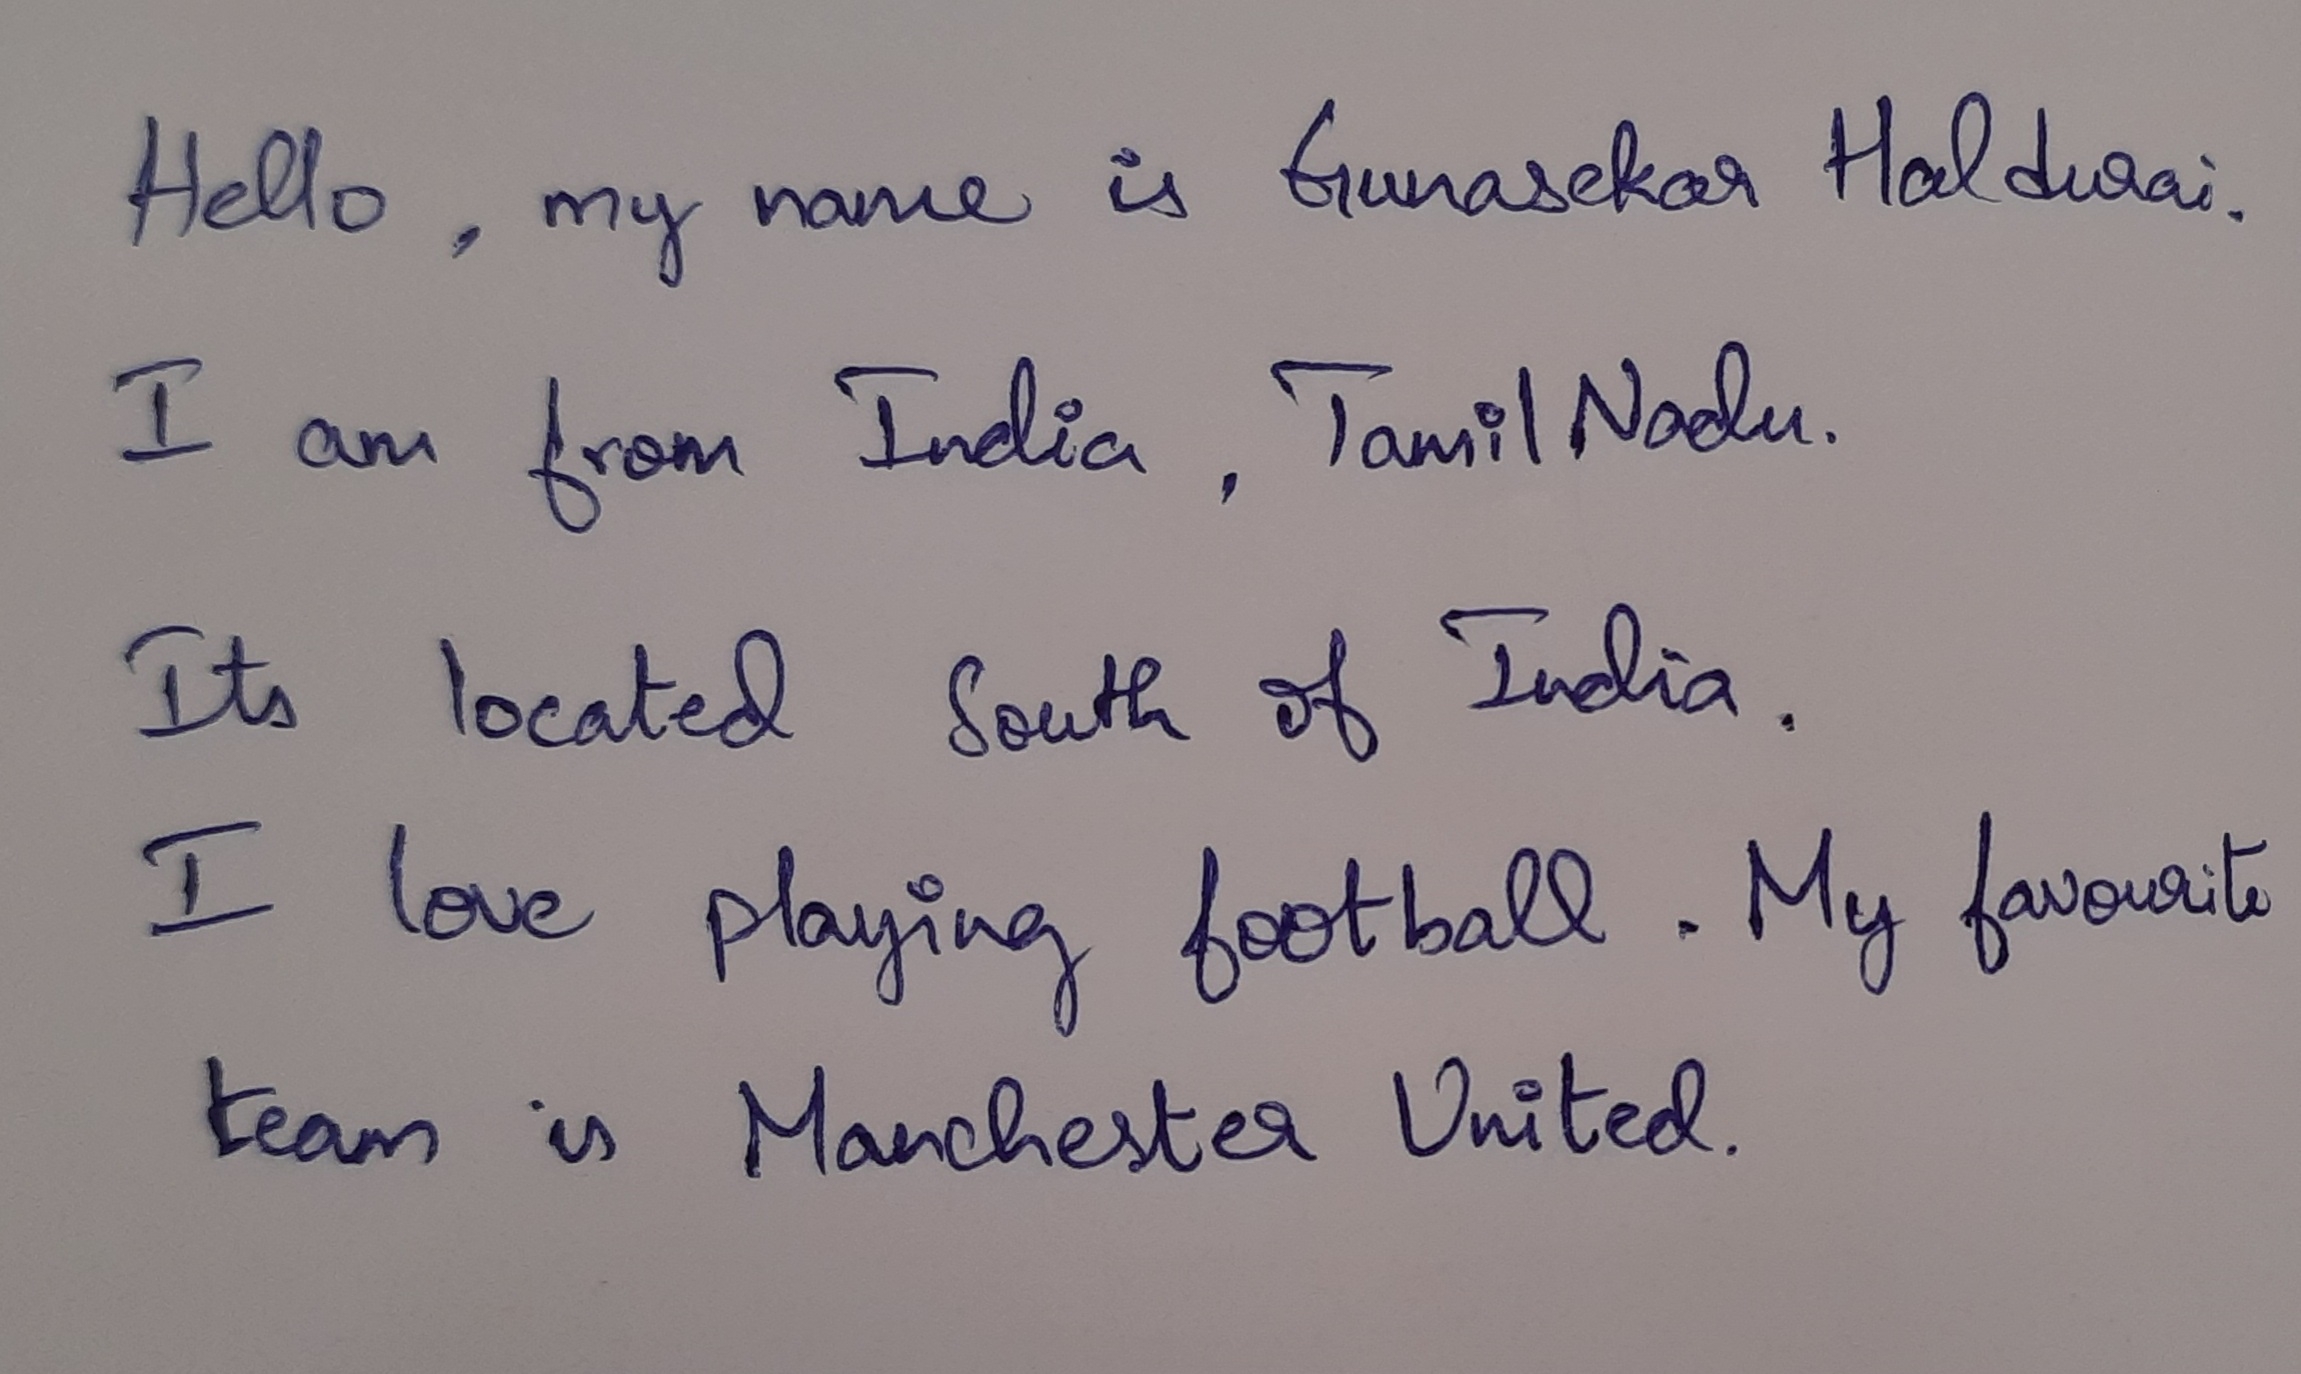 Hello, my name is Gunasekar Haldurai.
I am from India, Tamil Nadu.
Its located South of India.
I love playing football. My favourite
team is Manchester United.